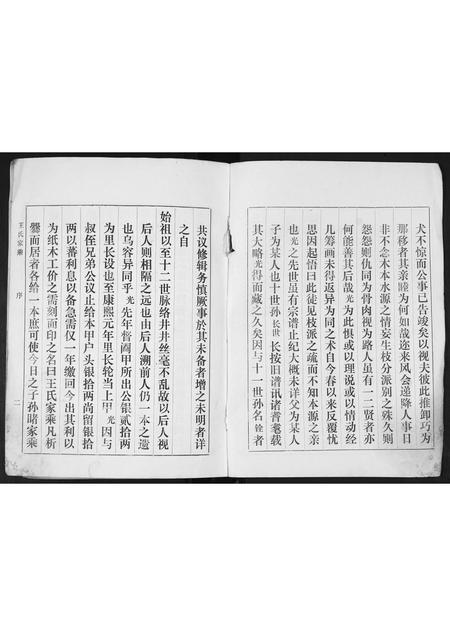 犬不惊而公事已告竣矣以视夫彼此推卸巧为
那移者其亲睦为何如哉迩来风会递降人事日
非不念木本水源之情妄生枝分派别之殊久则
怨怨则仇同为骨肉视为路人虽有一二贤者亦
何能善其后哉光为此惧或以理说或以情动经
几筹画未得返异为同之术自今春以来反覆忧
思因起悟曰此徒见枝派之疏而不知本源之亲
也光之先世虽有宗谱止纪大概未详父为某人
子为某人也十世孙长世长按旧谱讯诸耆耄载
其大略光得而藏之久矣因与十一世孙名铨者
共议修辑务慎厥事於其未备者增之未明者详
之自
始祖以至十二世脉络井井丝毫不乱故以后人视
后人则相隔之远也由后人溯前人仍一本之遗
也乌容异同乎光先年督阄甲所出公银贰拾两
为里长设也至康熙元年里长轮当上甲光因与
叔侄兄弟公议止给本甲户头银拾两尚留银拾
两以蕃利息以备急需仅一年缴回今出其利以
为纸木工价之需刻而印之名曰王氏家乘凡析
爨而居者各给一本庶可使今日之子孙睹家乘
王氏家乘
序
二